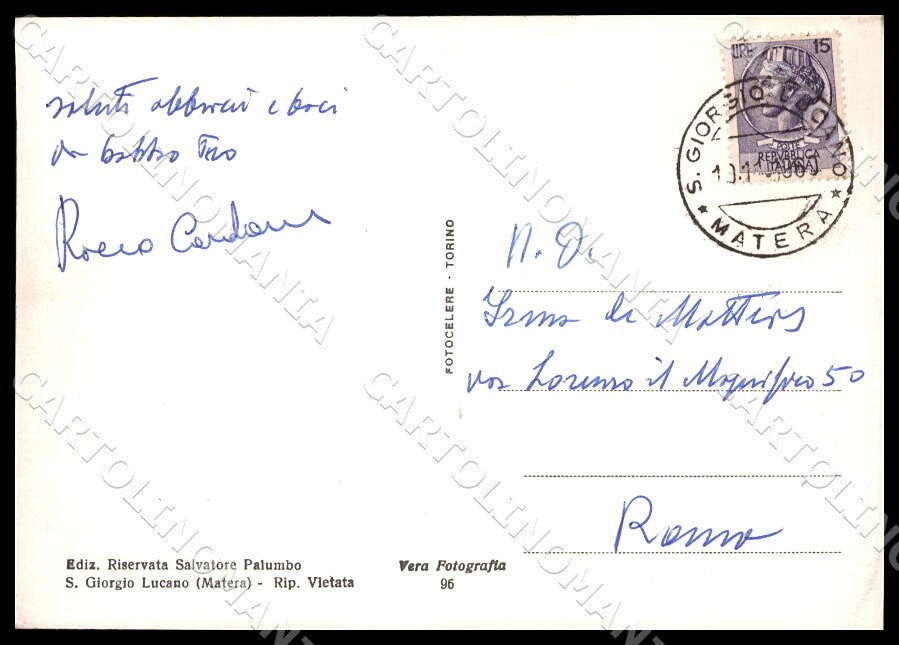 saluti abbracci e baci
da babbo Tuo
Rocco
LIRE 15
POSTE
REPVBBLICA
ITALIANA
S. GIORGIO LUCANO
★ MATERA ★
N. D.
Irma de Matteis
via Lorenzo il Magnifico 50
Roma
FOTOCELERE - TORINO
Ediz. Riservata Salvatore Palumbo
S. Giorgio Lucano (Matera) - Rip. Vietata
Vera Fotografia
96
CARTOLINOMANIA